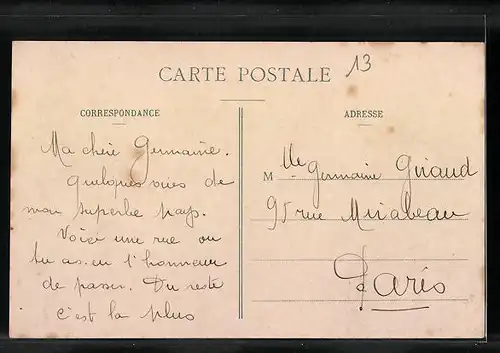 CARTE POSTALE
13
CORRESPONDANCE
Ma chère Germaine.
Quelques vues de
mon superbe pays.
Voici une rue ou
tu as eu l'honneur
de passer. Du reste
c'est la plus
ADRESSE
Mlle Germaine Giraud
95 rue Mirabeau
Paris